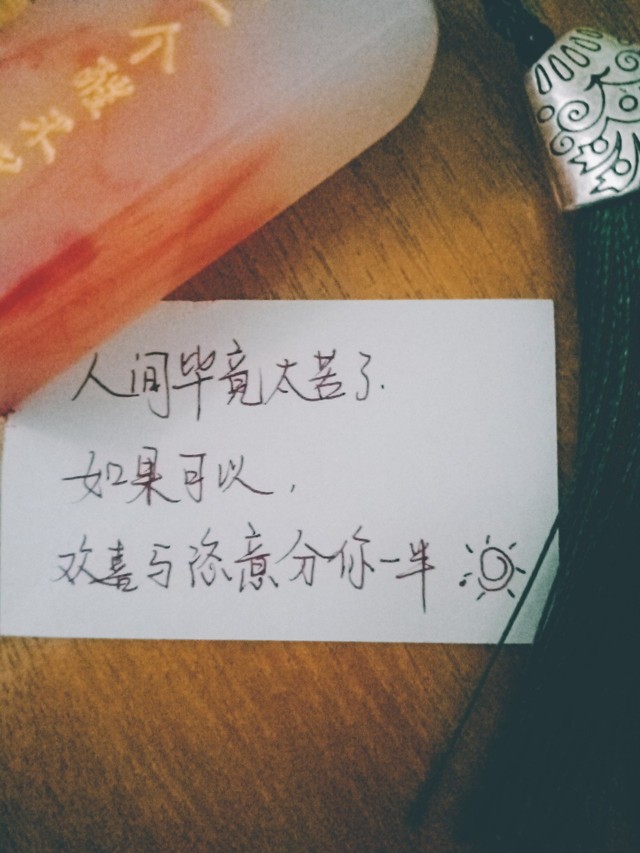 个
人间毕竟太苦了.
如果可以,
欢喜与意分你一半